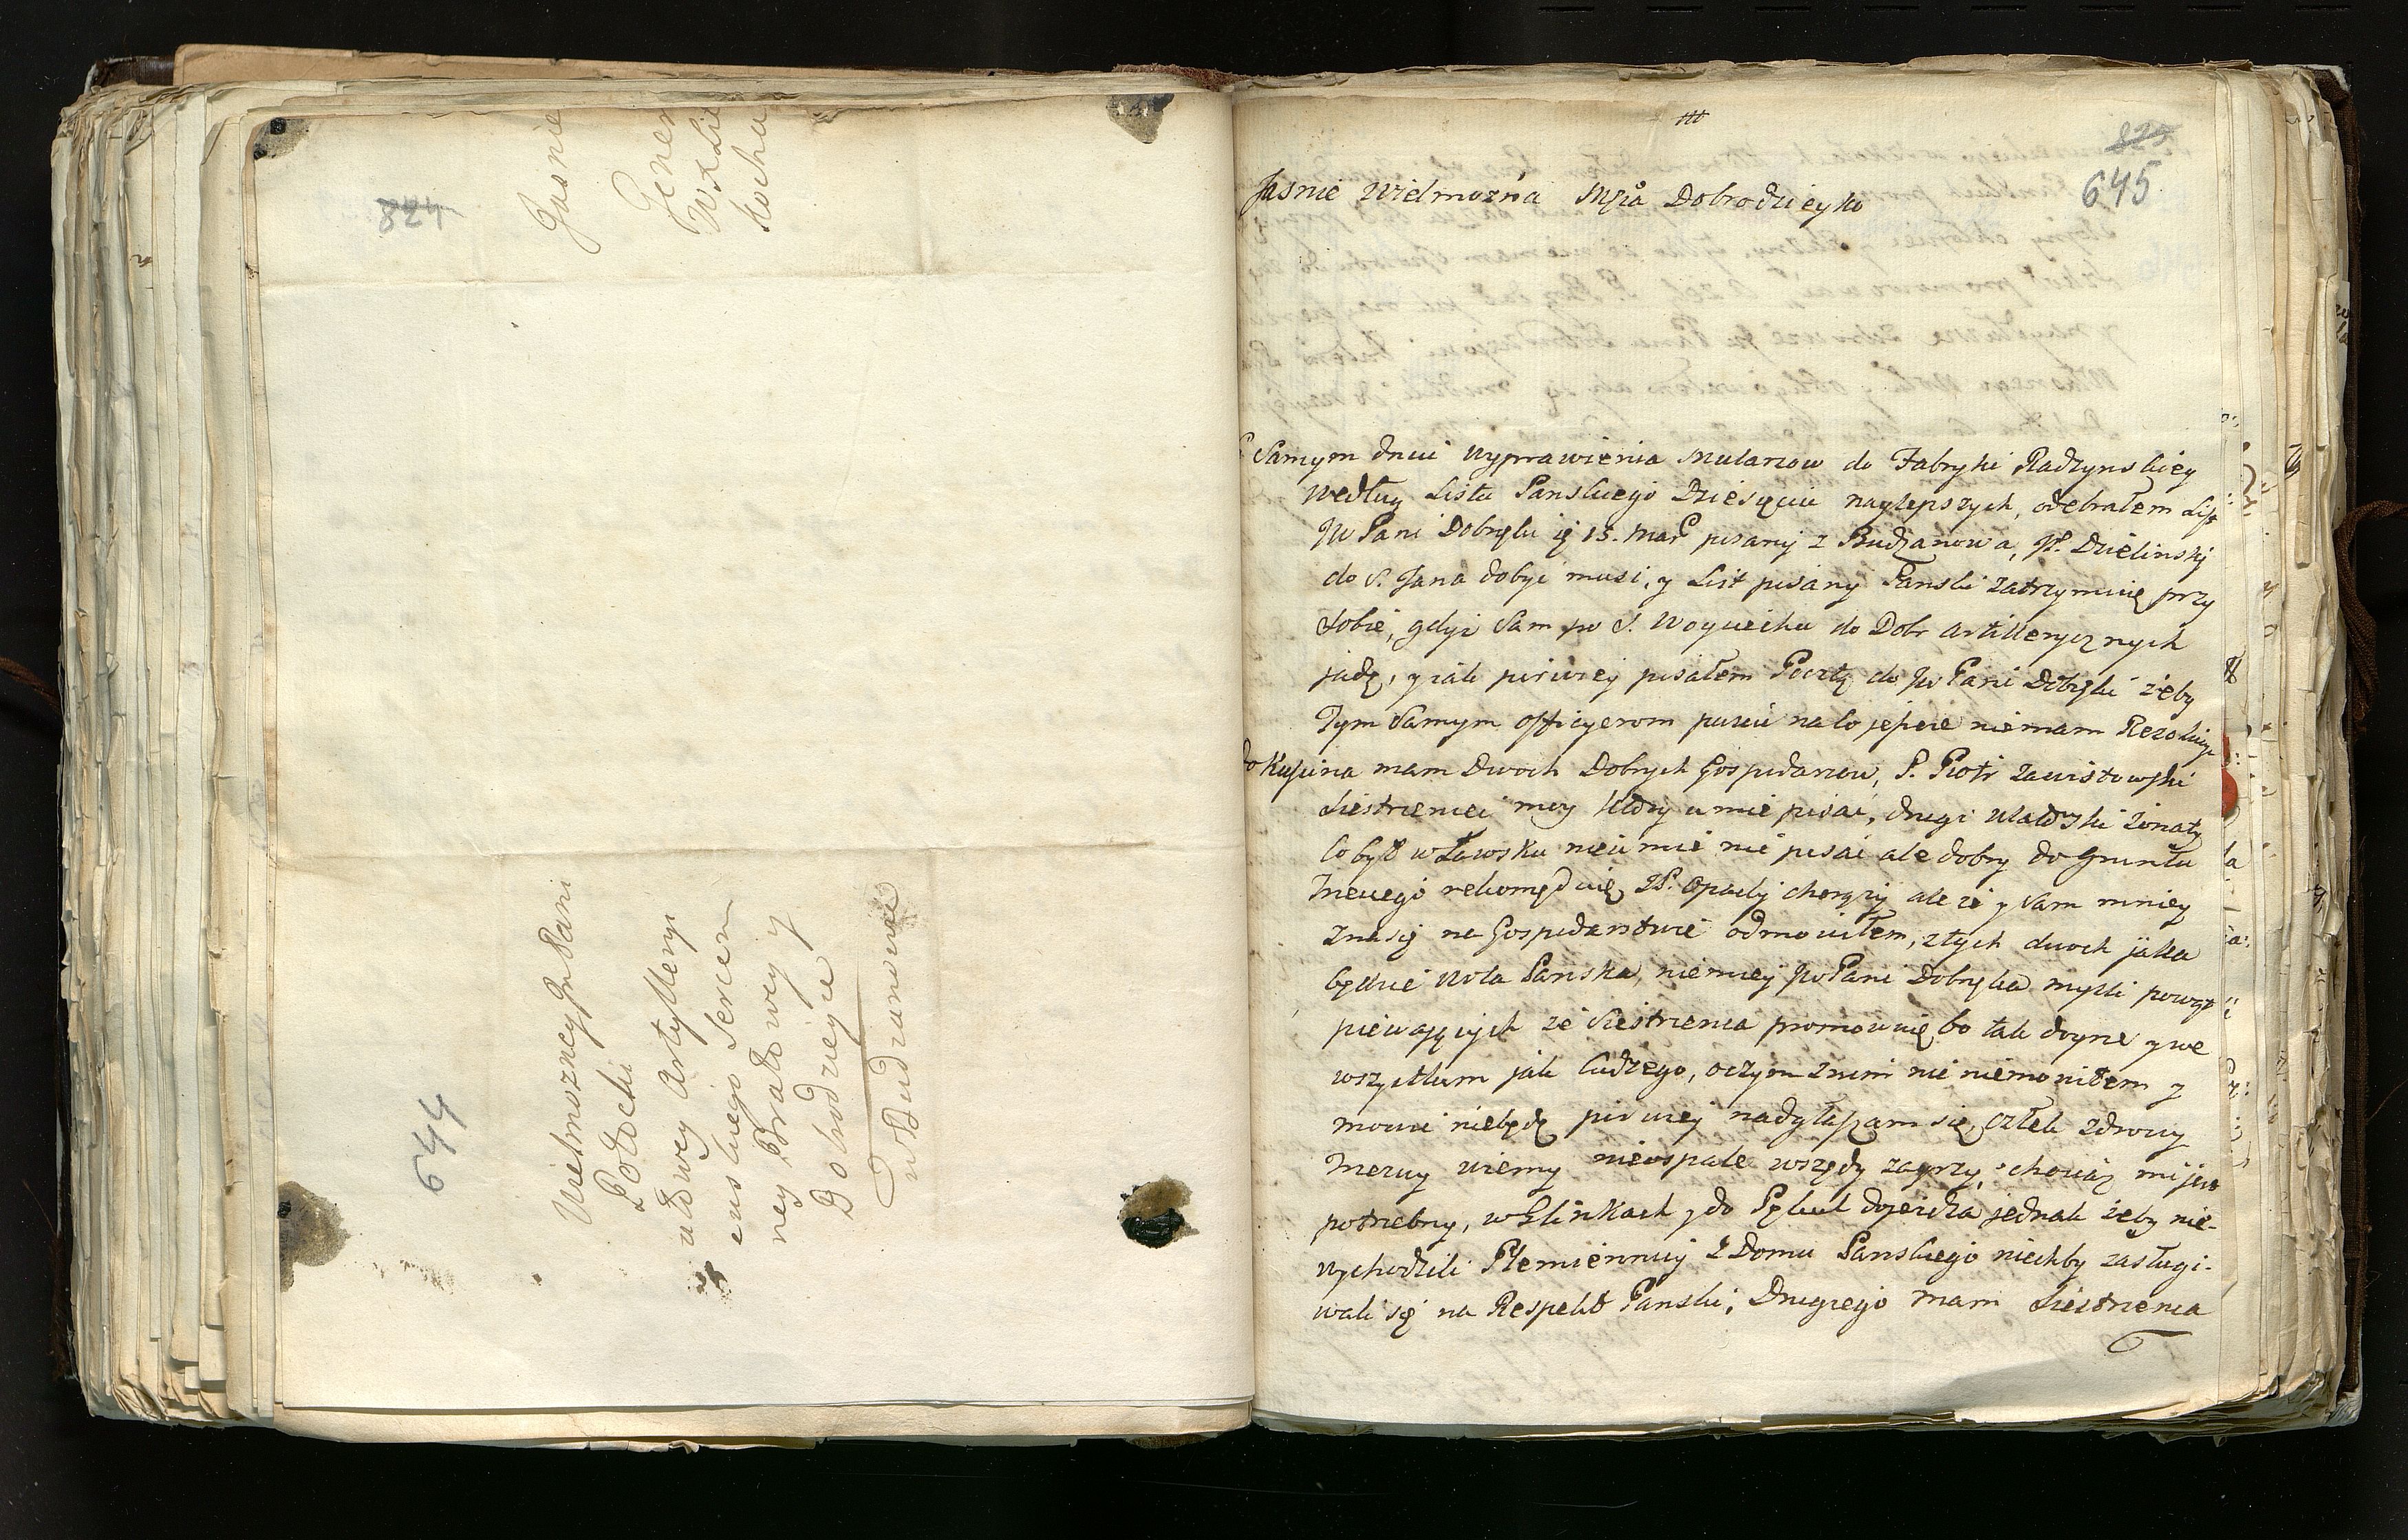 824
Jasnie
Wielmozney Jm Pani
Potocki
Gener
ałowey Artyllery
WXLit
ens kiego Sercem
Kocha
ney Bratowey y
Dobrodzieyce
w Budzanowie
644
825
645
Jasnie Wielmozna Mſcia Dobrodzieyko
Samym dniu wyprawienia Mularzow do Fabryki Radzynskiey
według Listu Panskiego Dziesięciu naylepszych, odebrałem List
JW Pani Dobrʃki 15. Mar pisany z Budzanowa, JP. Dzielinsky
do S. Jana dobyć musi, y List pisany Panski zatrzymuię przy
Sobie, gdyż Sam po S. Woyciechu do Dobr Artillerycznych
jadę, y iak pirwey pisałem Pocztą do JW Pani Dobrʃki żeby
Tym Samym officyerom puscić na to jeszcze niemam Rezolucyi
do Kuʃcina mam Dwoch Dobrych Gospodarzow, P. Piotr Zawistowski
Siestrzeniec moy ktory umie pisać, drugi żonaty
co był w Ławsku nieumie nic pisać ale dobry do Gruntu
Trzeciego rekomęduie JP. Chorąży ale że y Sam mniey
zna się na Gospodarstwie odmowiłem, z tych dwoch jaka
będzie Wola Panska, niemiey JW Pani Dobrʃka mysli powąt
piewaiących że Siestrzenca promowuię bo tak doyrze y we
wszystkim jak Cudzego, oczym znim nic niemowiłem y
mowić niebędę pirwey, człek zdrowy
Trzezwy wierny nieospałe wszędy zayrzy, chociaz mi jest
potrzebny, w Glinkach y do doiezdza jednak żeby nie-
wychodzili Plemiennicy z Domu Panskiego niechby zasługi-
wali się na Respekt Panski; Drugiego mam Siestrzenca